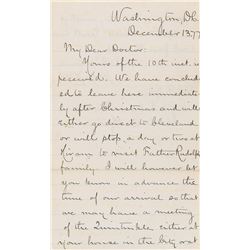 Washington, D.C.
December 13, 77
My Dear Doctor:
Yours of the 10th inst. is
received. We have concluded
to leave here immediate
ly after Christmas and will
either go direct to Cleveland
or will stop, a day or two at
Hiram to visit Father Rudolph's
family. I will however let
you know in advance the
time of our arrival so that
we may have a meeting
of the Quintinkle either at
your house in the city or at